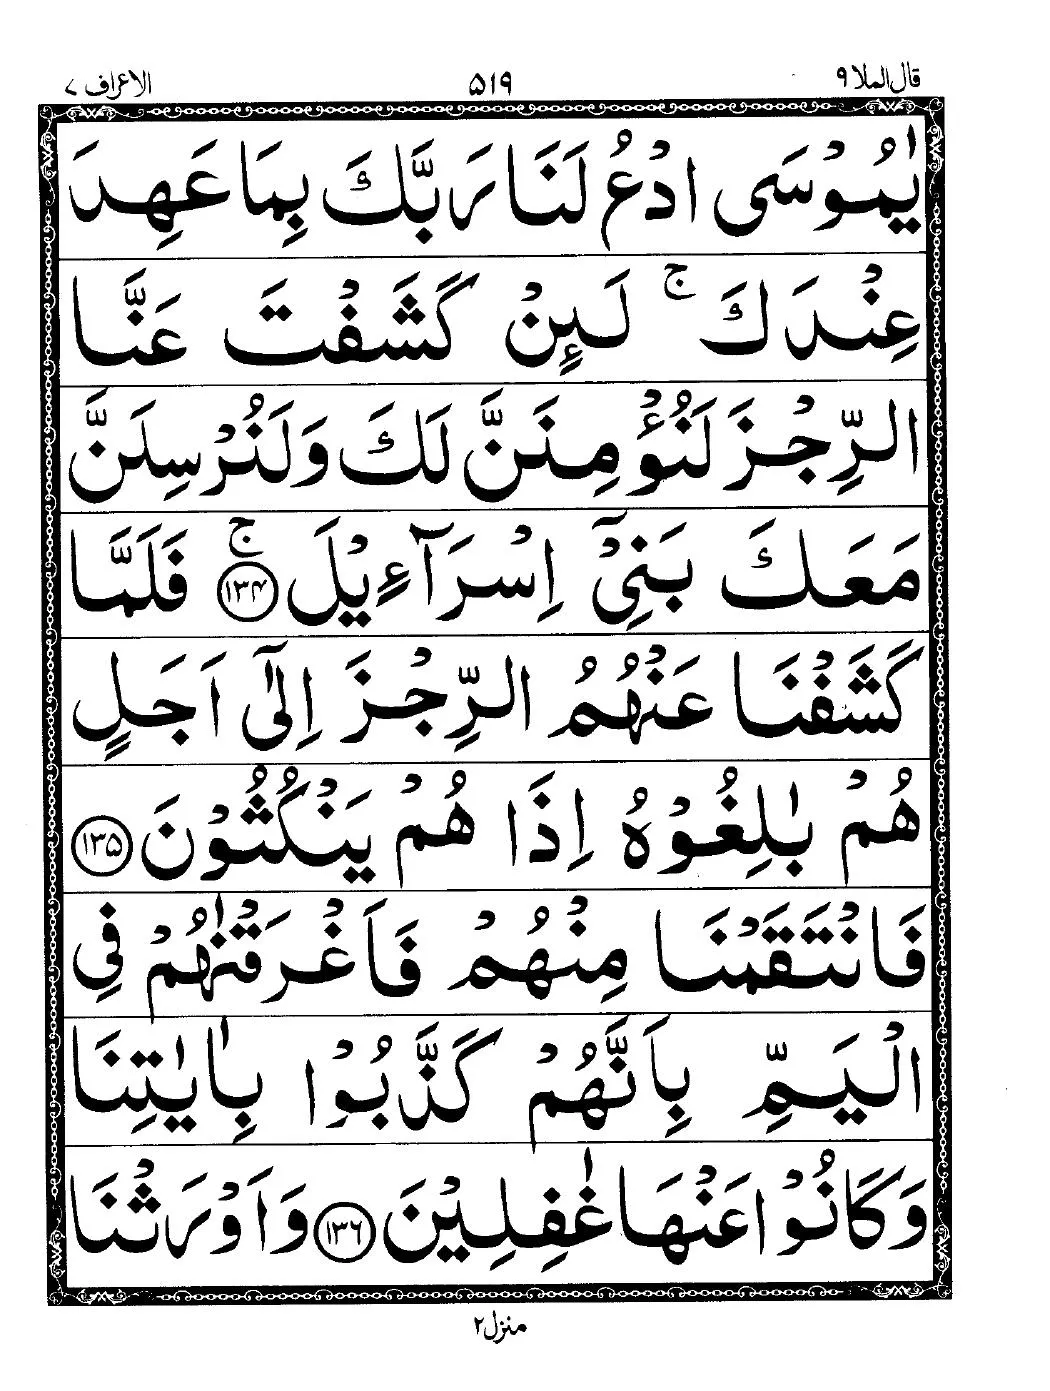 قال الملا ۹ ۵۱۹ الاعراف ۷
یٰمُوْسَی ادْعُ لَنَا رَبَّكَ بِمَا عَهِدَ
عِنْدَكَ ۚ لَىِٕنْ كَشَفْتَ عَنَّا
الرِّجْزَ لَنُؤْمِنَنَّ لَكَ وَلَنُرْسِلَنَّ
مَعَكَ بَنِیْۤ اِسْرَآءِیْلَ ۚ ﴿۱۳۴﴾ فَلَمَّا
كَشَفْنَا عَنْهُمُ الرِّجْزَ اِلٰۤی اَجَلٍ
هُمْ بٰلِغُوْهُ اِذَا هُمْ یَنْكُثُوْنَ ﴿۱۳۵﴾
فَانْتَقَمْنَا مِنْهُمْ فَاَغْرَقْنٰهُمْ فِی
الْیَمِّ بِاَنَّهُمْ كَذَّبُوْا بِاٰیٰتِنَا
وَكَانُوْا عَنْهَا غٰفِلِیْنَ ﴿۱۳۶﴾ وَاَوْرَثْنَا
منزل ۲